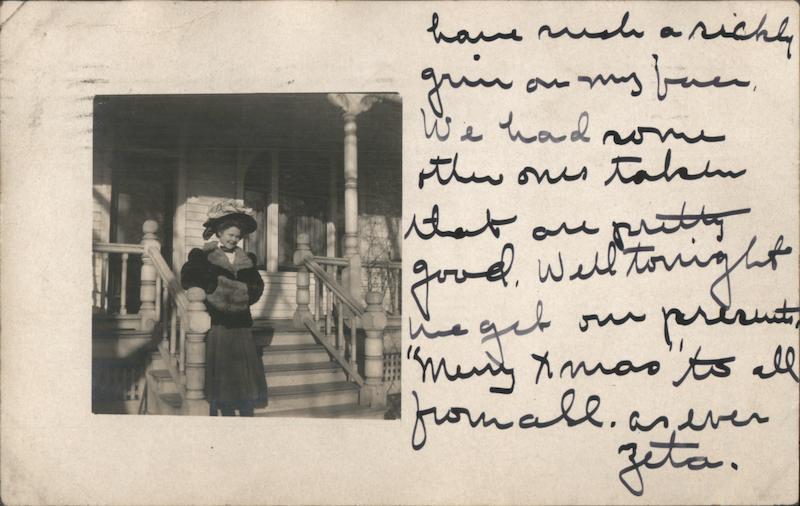 have such a sickly
grin on my face.
We had some
other ones taken
that are pretty
good. Well tonight
we get our presents.
"Merry Xmas" to all
from all. as ever
Zeta.